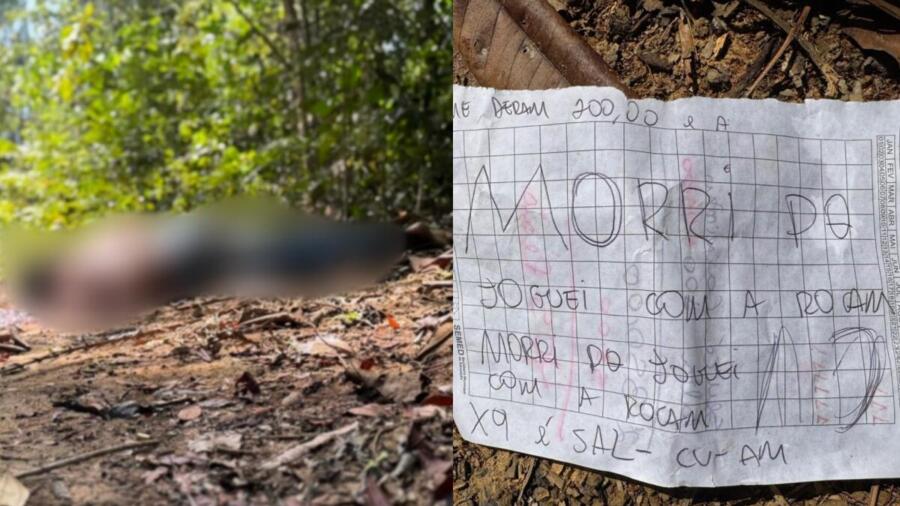 ME DERAM 200,00 e A
MORRi PO
JOGUEI COM A ROCAM
MORRI PO JOGUEI
COM A ROCAM
X9 é SAL- CV-AM
JAN FEV MAR ABR MAI
SEMED